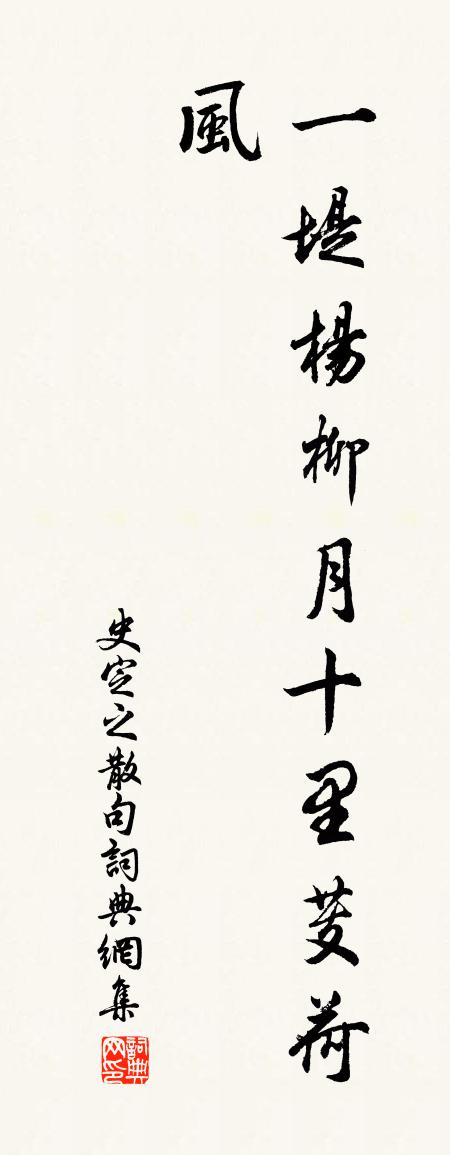 一堤楊柳月十里芰荷
風
史定之散句詞典網集
詞典网印